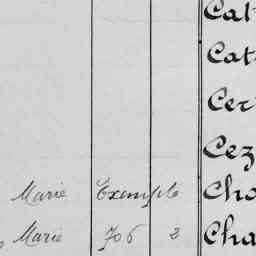 Cat
Cat
Cer
Cez
Marie Exemple Cha
Marie 706 2 Cha